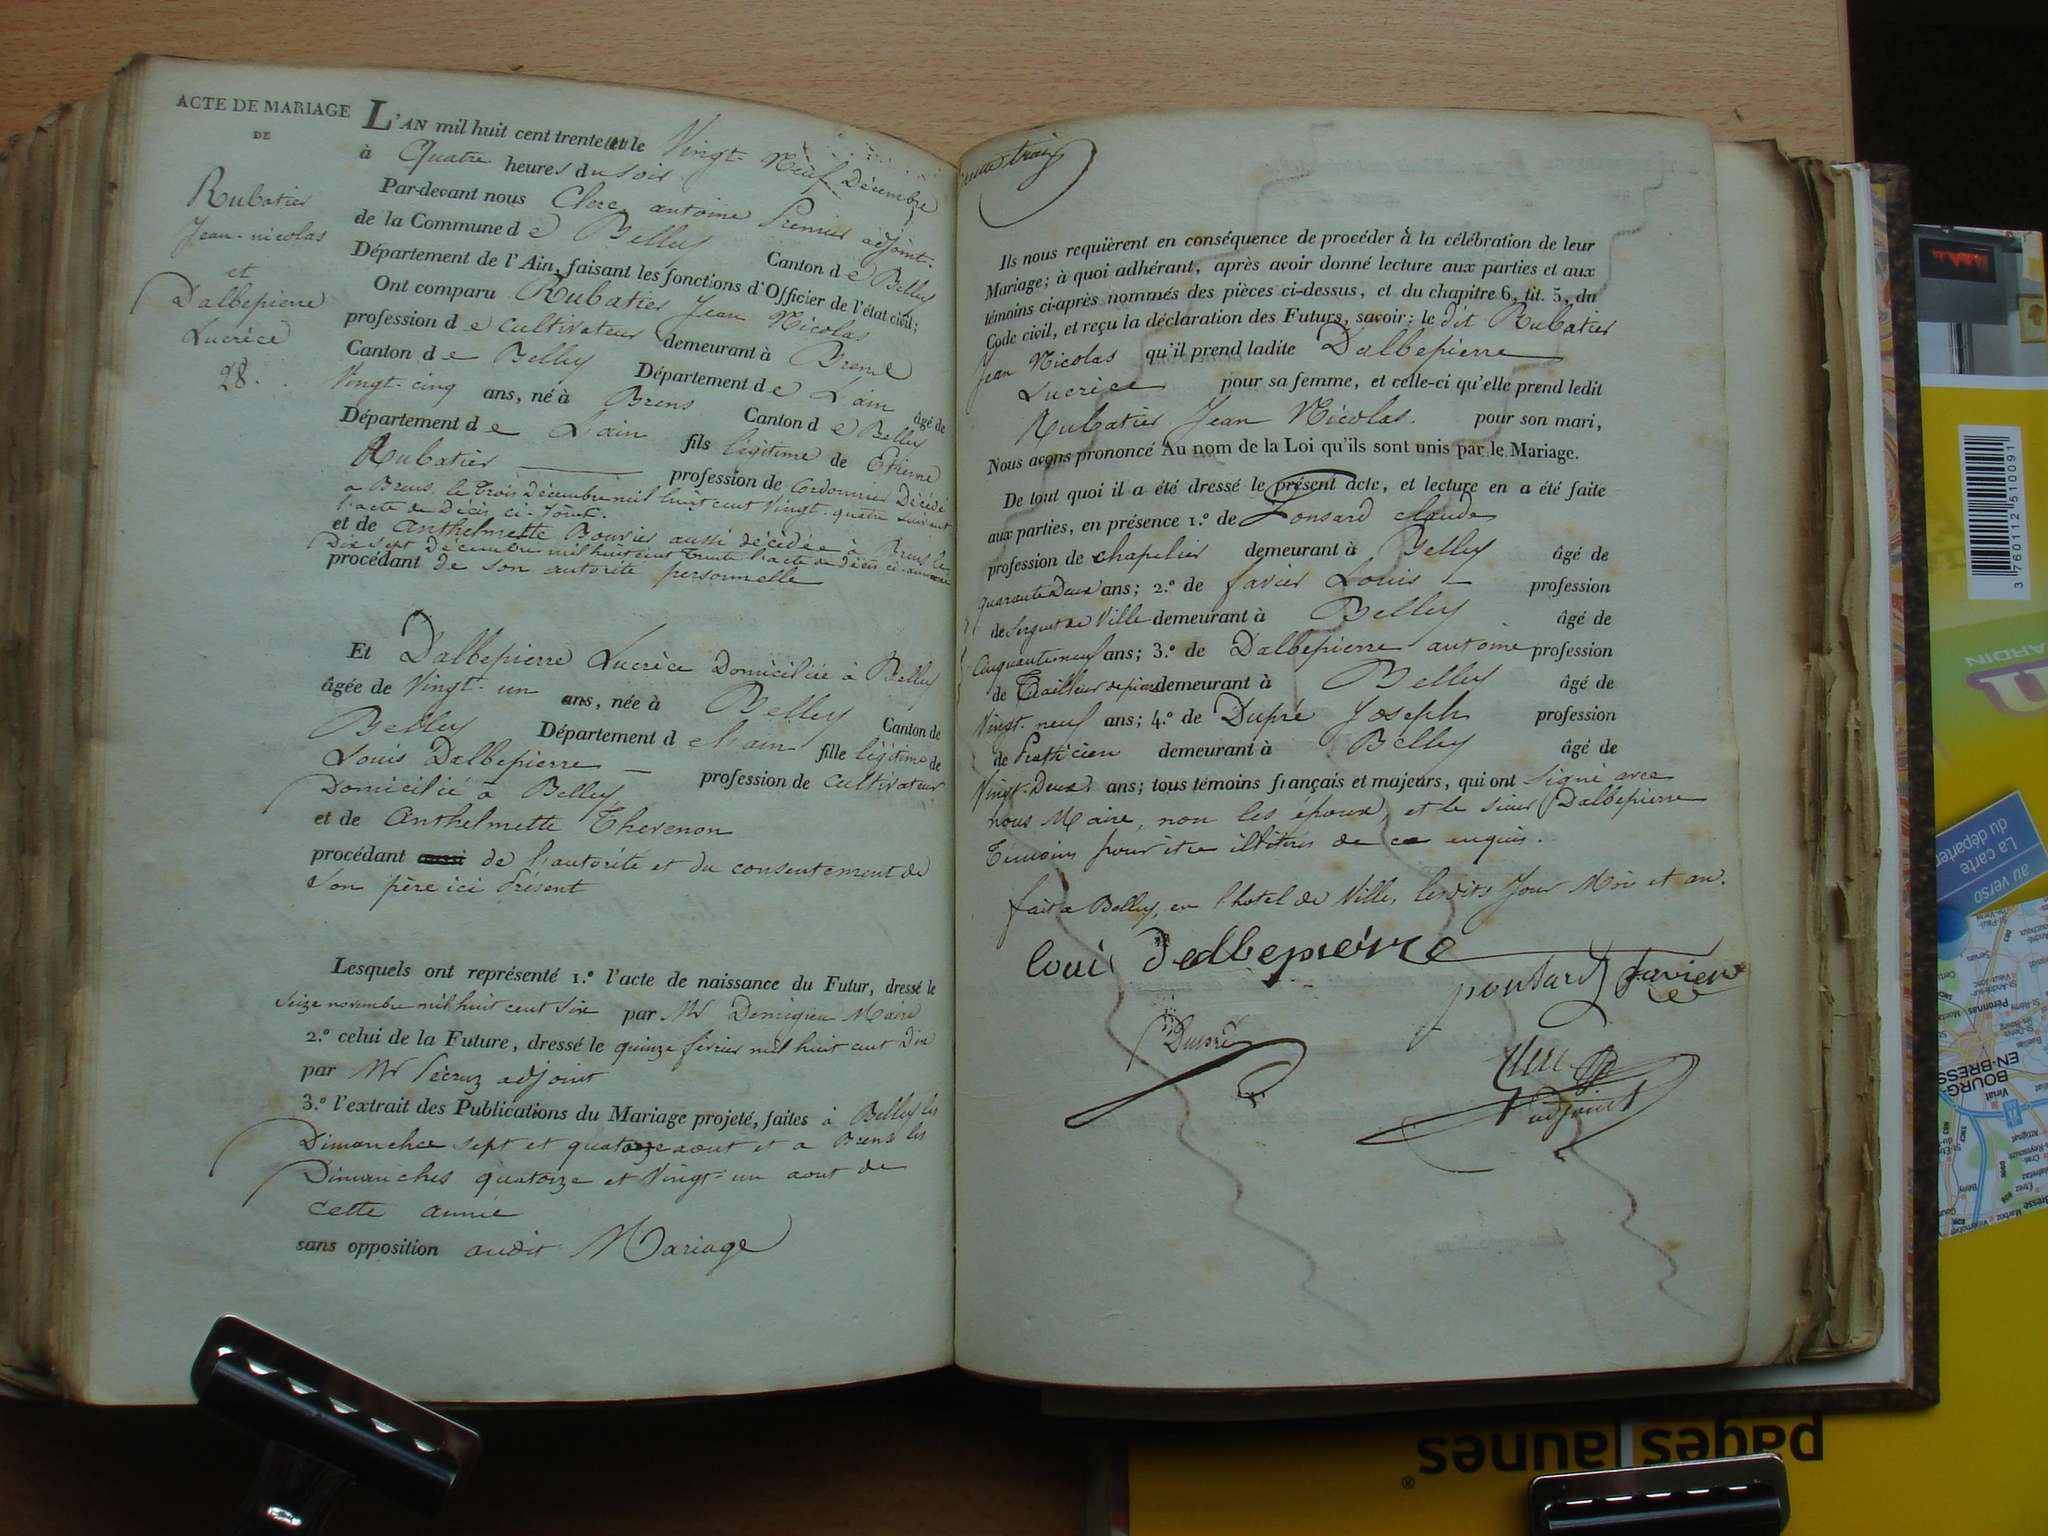 ACTE DE MARIAGE
DE
Rubatier
Jean-nicolas
et
Dalbepierre
Lucrèce
28.
L'AN mil huit cent trente et un le Vingt-Neuf Décembre
à Quatre heures du soir
Par-devant nous Clerc antoine Premier adjoint
de la Commune de Belley Canton de Belley
Département de l'Ain, faisant les fonctions d'Officier de l'état civil;
Ont comparu Rubatier Jean Nicolas
profession de cultivateur demeurant à Brens
Canton de Belley Département de Lain âgé de
Vingt-cinq ans, né à Brens Canton de Belley
Département de Lain fils légitime de Etienne
Rubatier profession de Cordonnier Décédé
a Brens le Trois Décembre mil huit cent Vingt-quatre suivant
l'acte de Décès ci-Joint.
et de Anthelmette Bouvier aussi décédée à Brens le
Dix sept décembre mil huit cent trente l'acte de décès ci-annexé
procédant de son autorité personnelle
Et Dalbepierre Lucrèce Domiciliée à Belley
âgée de Vingt-un ans, née à Belley Canton de
Belley Département de Lain fille légitime de
Louis Dalbepierre profession de cultivateur
Domicilié à Belley
et de Anthelmette Thevenon
procédant de l'autorité et du consentement de
son père ici Présent
Lesquels ont représenté 1.º l'acte de naissance du Futur, dressé le
Seize novembre mil huit cent six par Mr Demigieu Maire
2.º celui de la Future, dressé le quinze février mil huit cent Dix
par Mr Pécruz adjoint
3.º l'extrait des Publications du Mariage projeté, faites à Belley les
Dimanches sept et quatorze aout et a Brens les
Dimanches quatorze et Vingt-un aout de
cette année
sans opposition audit Mariage
Ils nous requièrent en conséquence de procéder à la célébration de leur
Mariage; à quoi adhérant, après avoir donné lecture aux parties et aux
témoins ci-après nommés des pièces ci-dessus, et du chapitre 6, tit. 5, du
Code civil, et reçu la déclaration des Futurs, savoir: le dit Rubatier
Jean Nicolas qu'il prend ladite Dalbepierre
Lucrèce pour sa femme, et celle-ci qu'elle prend ledit
Rubatier Jean Nicolas. pour son mari,
Nous avons prononcé Au nom de la Loi qu'ils sont unis par le Mariage.
De tout quoi il a été dressé le présent acte, et lecture en a été faite
aux parties, en présence 1.º de Ponsard claude
profession de chapelier demeurant à Belley âgé de
quarante Deux ans; 2.º de favier Louis profession
de Sergent de Ville demeurant à Belley âgé de
Cinquante neuf ans; 3.º de Dalbepierre antoine profession
de Tailleur de pierre demeurant à Belley âgé de
Vingt-neuf ans; 4.º de Dupré Joseph profession
de Praticien demeurant à Belley âgé de
Vingt-Deux ans; tous témoins français et majeurs, qui ont signé avec
nous Maire, non les époux, et le sieur Dalbepierre
Témoins pour être illitérés de ce enquis.
fait a Belley, en l'hotel de Ville, lesdits Jour Mois et an.
loui dalbepierre
ponsard favier
Dupré
Clerc
adjoint
3 760112 510091
JARDIN
La carte
du départem
au verso
Péronnas
BOURG-
EN-BRESSE
Viriat
pages jaunes